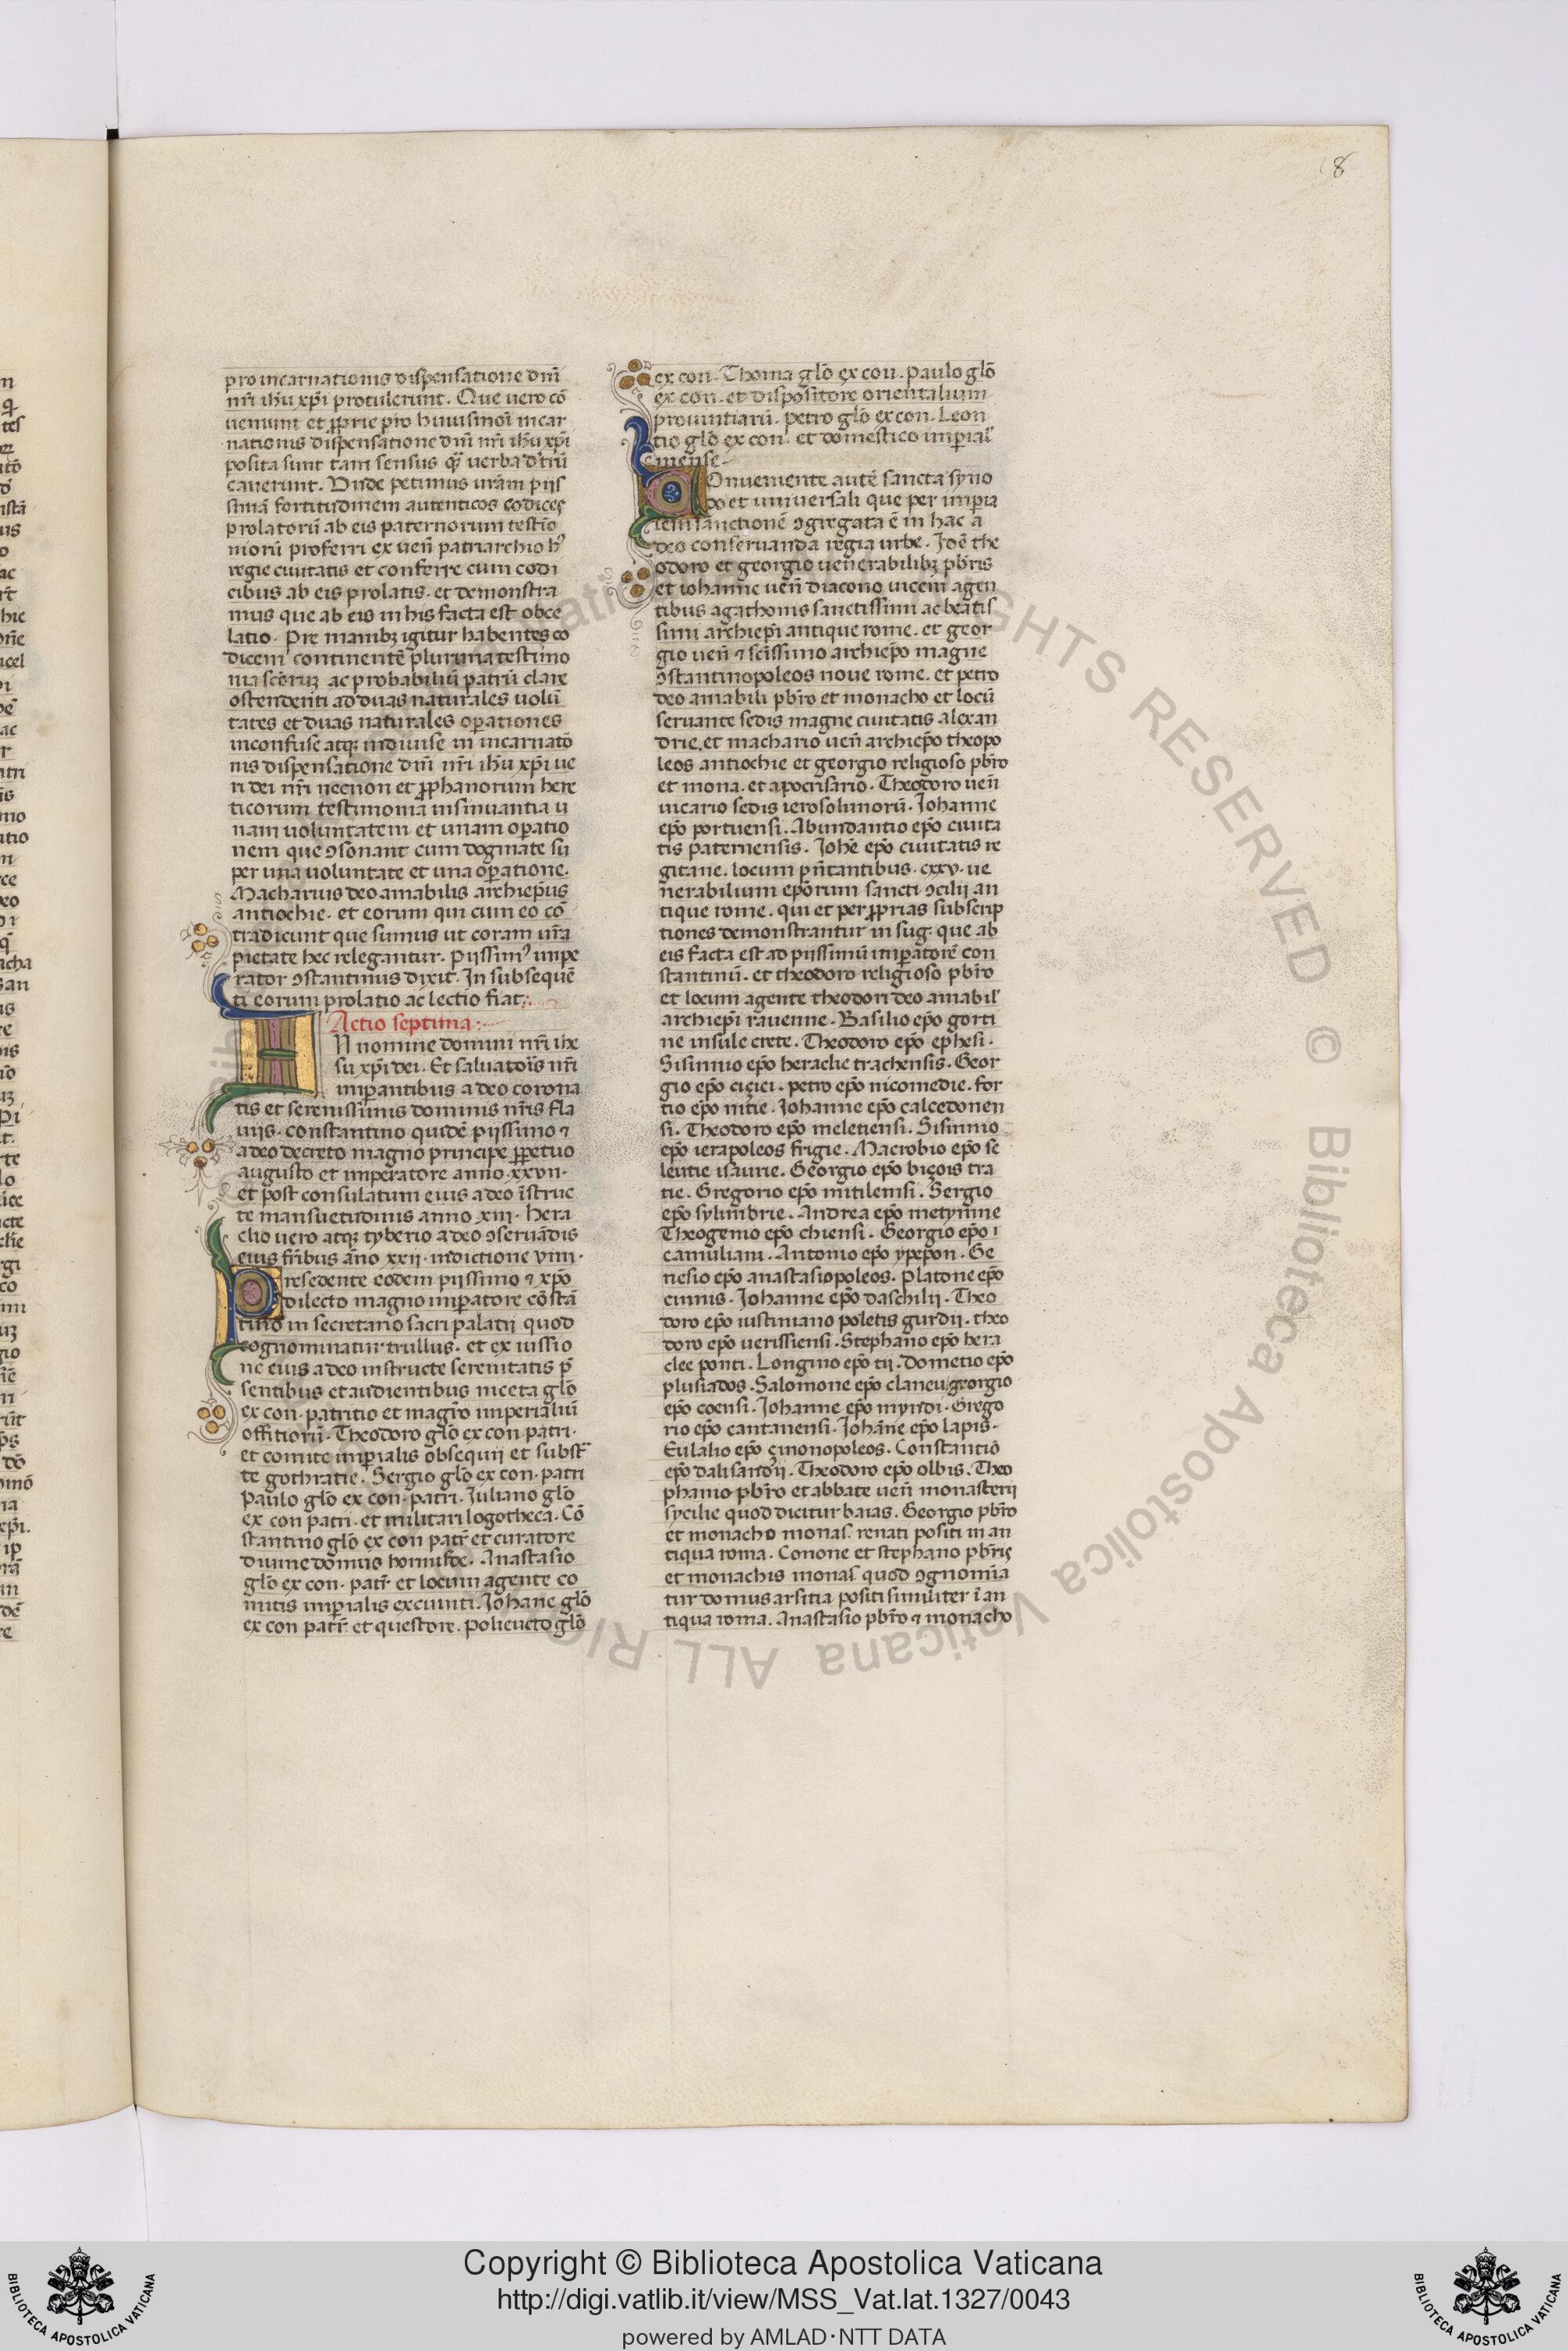 8
pro incarnationis dispensatione dnī
nr̄i ih̄u xp̄i protulerunt. Que uero cō
uenium et ꝓprie pro huiusmōi incar
nationis dispensatione dnī nr̄i ih̄u xp̄i
posita sunt tam sensus qͣꝫ uerba dꝰtrū
cauerunt. Vnde petimus urām piis
simā fortitudinem autenticos codices
prolatorū ab eis paternorum testīo
niorū proferri ex ueñ patriarchio hꝰ
regie ciuitatis et conferre cum codi
cibus ab eis prolatis. et demonstra
mus que ab eis in his facta est obce
latio. Pre manibꝫ igitur habentes co
dicem continentē plurima testimo
nia scōruꝫ ac probabiliū patrū clare
ostendenti ad duas naturales uolū
tates et duas naturales oꝑationes
inconfuse atqꝫ indiuise in incarnatō
nis dispensatione dnī nr̄i ih̄u xp̄i ue
ri dei nr̄i necnon et ꝓphanorum here
ticorum testimonia insinuantia u
nam uoluntatem et unam oꝑatio
nem que ꝯsonant cum dogmate su
per una uoluntate et una oꝑatione.
Macharius deo amabilis archiep̄us
antiochie. et eorum qui cum eo cō
tradicunt que sumus ut coram ur̄a
pietate hec relegantur. Piissimꝰ impe
rator ꝯstantinus dixit. In subsequē
ti eorum prolatio ac lectio fiat:.
Actio septima:
IN nomine domini nr̄i ihe
su xp̄i dei. Et saluatoīs nr̄i
imꝑantibus a deo corona
tis et serenissimis dominis nr̄is fla
uiis. constantino quidē piissimo ⁊
a deo decreto magno principe ꝑpetuo
augusto et imperatore anno .xxvii.
et post consulatum eius a deo īstruc
te mansuetudinis anno .xiii. hera
clio uero atqꝫ tyberio a deo ꝯseruādis
eius fr̄ibus año xxii. indictione viiii.
Presedente eodem piissimo ⁊ xp̄o
dilecto magno imꝑatore cōstā
tino in secretario sacri palatii quod
cognominatur trullus. et ex iussio
ne eius a deo instructe serenitatis p̄
sentibus et audientibus niceta glō
ex con. patritio et magr̄o imperialiū
offitiorū. Theodoro glō ex con. patri.
et comite imꝑialis obsequii et subst̄
te gothratie. Sergio glō ex con. patri
Paulo glō ex con. patri. Iuliano glō
ex con patri. et militari logotheca. Cō
stantino glō ex con patr̄ et curatore
diuine domus hormisde. Anastasio
glō ex con. patr̄ et locum agente co
mitis imꝑialis excuuiti. Iohane glō
ex con patr̄. et questore. Polieucto glō
ex con. Thoma glō ex con. Paulo glō
ex con. et dispositore orientalium
prouintiarū. petro glō ex con. Leon
tio glō ex con. et domestico imꝑial̄
mense.
COnueniente autē sancta syno
do et uniuersali que per impia
lem sanctionē ꝯgregata ē in hac a
deo conseruanda regia urbe. Ioē the
odoro et georgio uenerabilibꝫ pb̄ris
et iohanne ueñ diacono uicem agen
tibus agathonis sanctissimi ac beatis
simi archiepī antique rome. et geor
gio ueñ ⁊ scīssimo archiep̄o magne
ꝯstantinopoleos noue rome. et petro
deo amabili pb̄ro et monacho et locū
seruante sedis magne ciuitatis alexan
drie. et machario ueñ archiep̄o theopo
leos antiochie et georgio religioso pb̄ro
et mona. et apocrisario. Theodoro ueñ
uicario sedis ierosolimorū. Iohanne
ep̄o portuensi. Abundantio ep̄o ciuita
tis paternensis. Iohē ep̄o ciuitatis re
gitane. locum pñtantibus .cxxv. ue
nerabilium ep̄orum sancti ꝯcilii an
tique rome. qui et per ꝓprias subscrip
tiones demonstrantur in sug. que ab
eis facta est ad piissimū imꝑatorē con
stantinū. et theodoro religioso pb̄ro
et locum agente theodori deo amabil̄
archiep̄i rauenne. Basilio ep̄o gorti
ne insule crete. Theodoro ep̄o ephesi.
Sisinnio ep̄o heraclie trachensis. Geor
gio ep̄o ciçici. petro ep̄o nicomedie. for
tio ep̄o nitie. Iohanne ep̄o calcedonen
si. Theodoro ep̄o meletiensi. Sisinnio
ep̄o ierapoleos frigie. Macrobio ep̄o se
leutie isaurie. Georgio ep̄o biçois tra
tie. Gregorio ep̄o mitilensi. Sergio
ep̄o sylimbrie. Andrea ep̄o metymne
Theogenio ep̄o chiensi. Georgio ep̄o i
camuliam. Antonio ep̄o ypepon. Ge
nesio ep̄o anastasiopoleos. Platone ep̄o
cinnis. Iohanne ep̄o daschilii. Theo
doro ep̄o iustiniano poletis gurdii. theo
doro ep̄o uerissiensi. Stephano ep̄o hera
clee ponti. Longino ep̄o tii. Dometio ep̄o
plusiados. Salomone ep̄o claneu georgio
ep̄o coensi. Iohanne ep̄o myndi. Grego
rio ep̄o cantanensi. Iohāne ep̄o lapis.
Eulalio ep̄o çinonopoleos. Constantio
ep̄o dalisandii. Theodoro ep̄o olbis. Theo
phanio pb̄ro et abbate ueñ monasterii
sycilie quod dicitur baias. Georgio pb̄ro
et monacho monas. renati positi in an
tiqua roma. Conone et stephano pb̄ris
et monachis monas quod ꝯgnomīa
tur domus arsitia positi similiter ī an
tiqua roma. Anastasio pb̄ro ⁊ monacho
Copyright © Biblioteca Apostolica Vaticana
http://digi.vatlib.it/view/MSS_Vat.lat.1327/0043
powered by AMLAD·NTT DATA
BIBLIOTECA APOSTOLICA VATICANA
BIBLIOTECA APOSTOLICA VATICANA